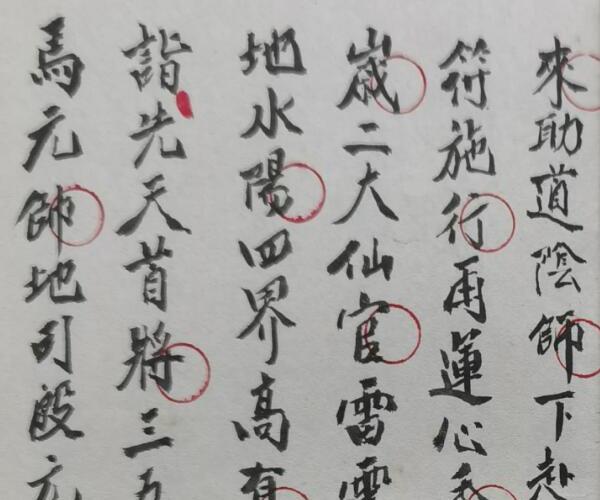 來助道陰師下赴
符施行再運心
歲二大仙官雷電
地水陽四界高有
詣先天首將三五
馬元帥地司殷元